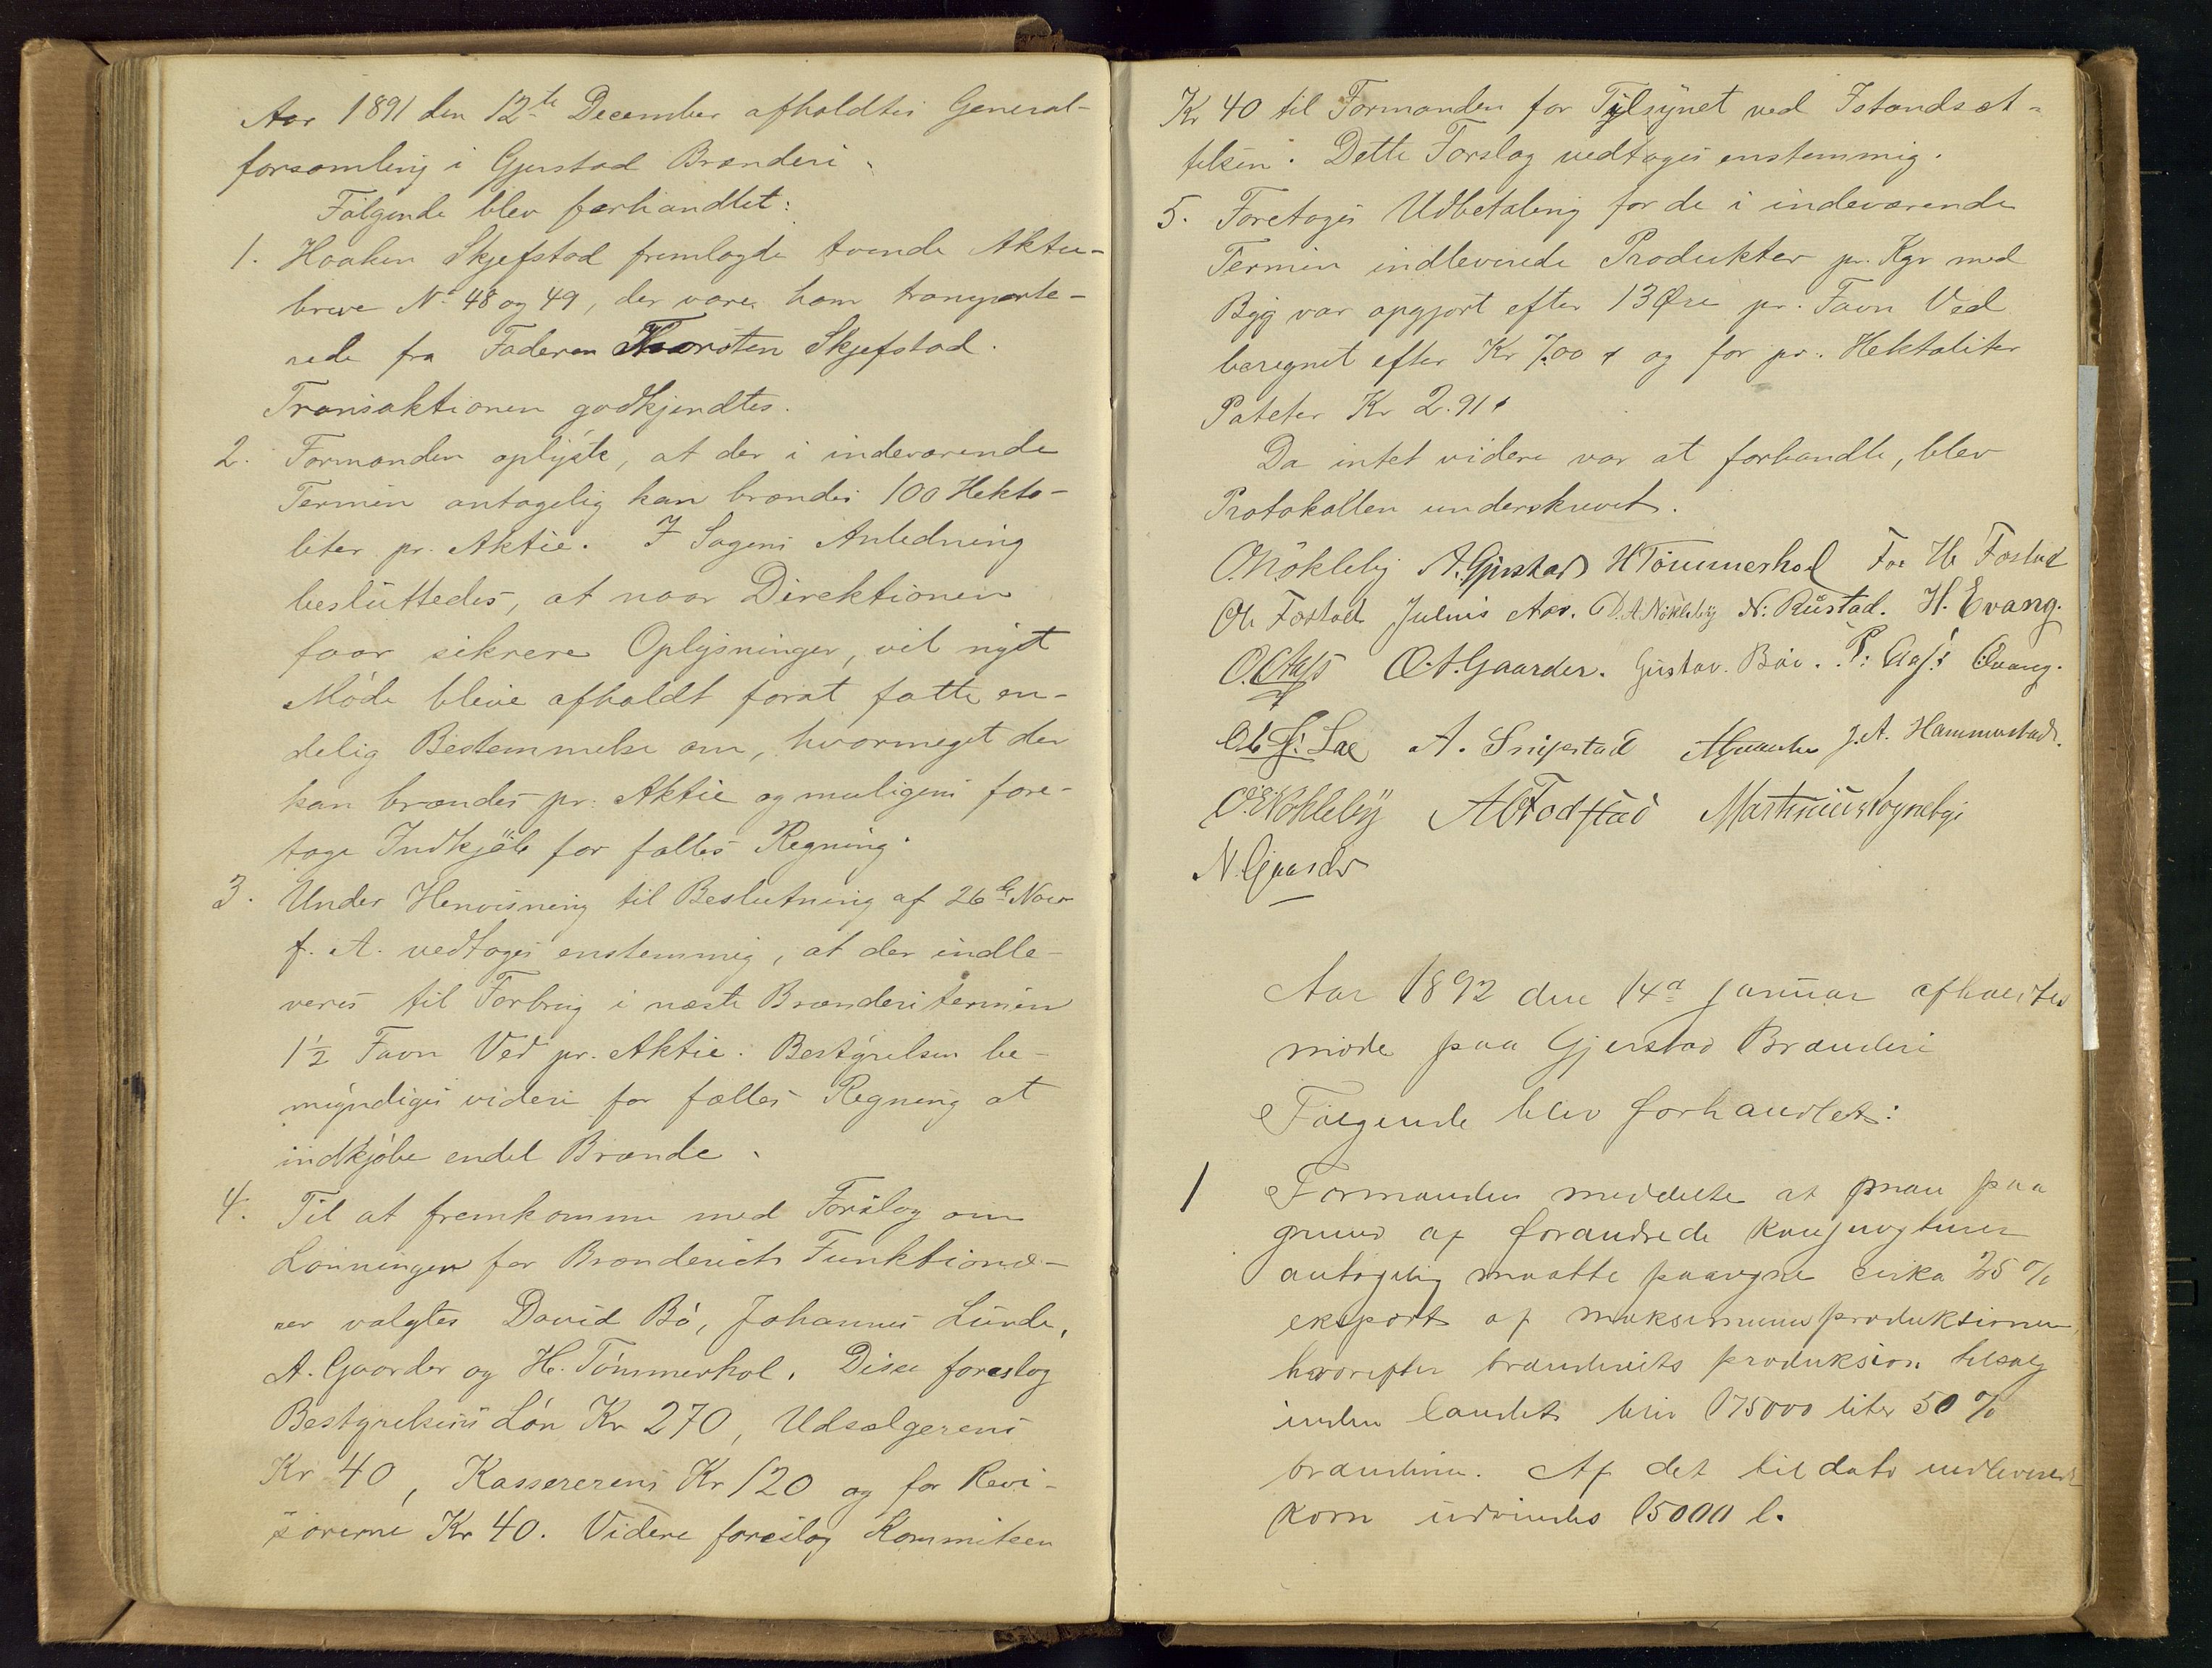 Aar 1891 den 12te December afholdtes General-
forsamling i Gjerstad Brænderi.
Følgende blev forhandlet:
1. Haaken Skjefstad fremlagde tvende Aktie-
breve No 48 og 49, der vare ham transporte-
rede fra Faderen Thorsten Skjefstad.
Transaktionen godkjendtes.
2. Formanden oplyste, at der i indeværende
Termin antagelig kan brændes 100 Hekto-
liter pr. Aktie. I Sagens Anledning
besluttedes, at naar Direktionen
faar sikrere Oplysninger, vil nyt
Møde blive afholdt forat fatte en-
delig Bestemmelse om, hvormeget der
kan brændes pr. Aktie og muligens fore-
tage Indkjøb for fælles Regning.
3. Under Henvisning til Beslutning af 26de Novr
f. A. vedtoges enstemmig, at der indle-
veres til Forbrug i næste Brænderitermin
1½ Favn Ved pr. Aktie. Bestyrelsen be-
myndiges videre for fælles Regning at
indkjøbe endel Brænde.
4. Til at fremkomme med Forslag om
Lønninger for Brænderiets Funktionæ-
rer valgtes David Bø, Johannes Lunde,
A. Gaarder og H. Tømmerhol. Disse foreslog
Bestyrelsens Løn Kr 270, Udsælgerens
Kr 40, Kassererens Kr 120 og for Revi-
sorerne Kr 40. Videre foreslog Kommiteen
Kr 40 til Formanden for Tilsynet ved Istandsæt-
telsen. Dette Forslag vedtoges enstemmig.
5. Foretoges Udbetaling for de i indeværende
Termin indleverede Produkter pr. Kgr med
Byg var opgjort efter 13 Øre pr. Favn Ved
beregnet efter Kr 7.00 og for pr. Hektoliter
Poteter Kr 2.91.
Da intet videre var at forhandle, blev
Protokollen underskrevet.
O. Nökleby A. Gjerstad H Tömmerhol For H. Fostad
Ole Fostad Julius Aas. D. A. Nökleby N. Rustad. H. Evang.
O. Aas O. A. Gaarder. Gustav. Böe. P. Aas. Evang.
Ole J. Lae A. Snipstad J. A. Hammerstad.
O. E. Nökleby A Fodstad Martinius Sognebye
N. Gaarder
Aar 1892 den 14de Januar afholdtes
møde paa Gjerstad Brænderi
Følgende blev forhandlet:
1 Formanden meddelte at man paa
grund af forandrede konjungturer
antagelig maatte paaregne cirka 25 %
eksport af maksimumsproduktionen,
hvorefter brænderiets produksion tilsalg
inden landet blir 175000 liter 50 %
brændevin. Af det til dato indleverede
korn udvindes 15000 l.